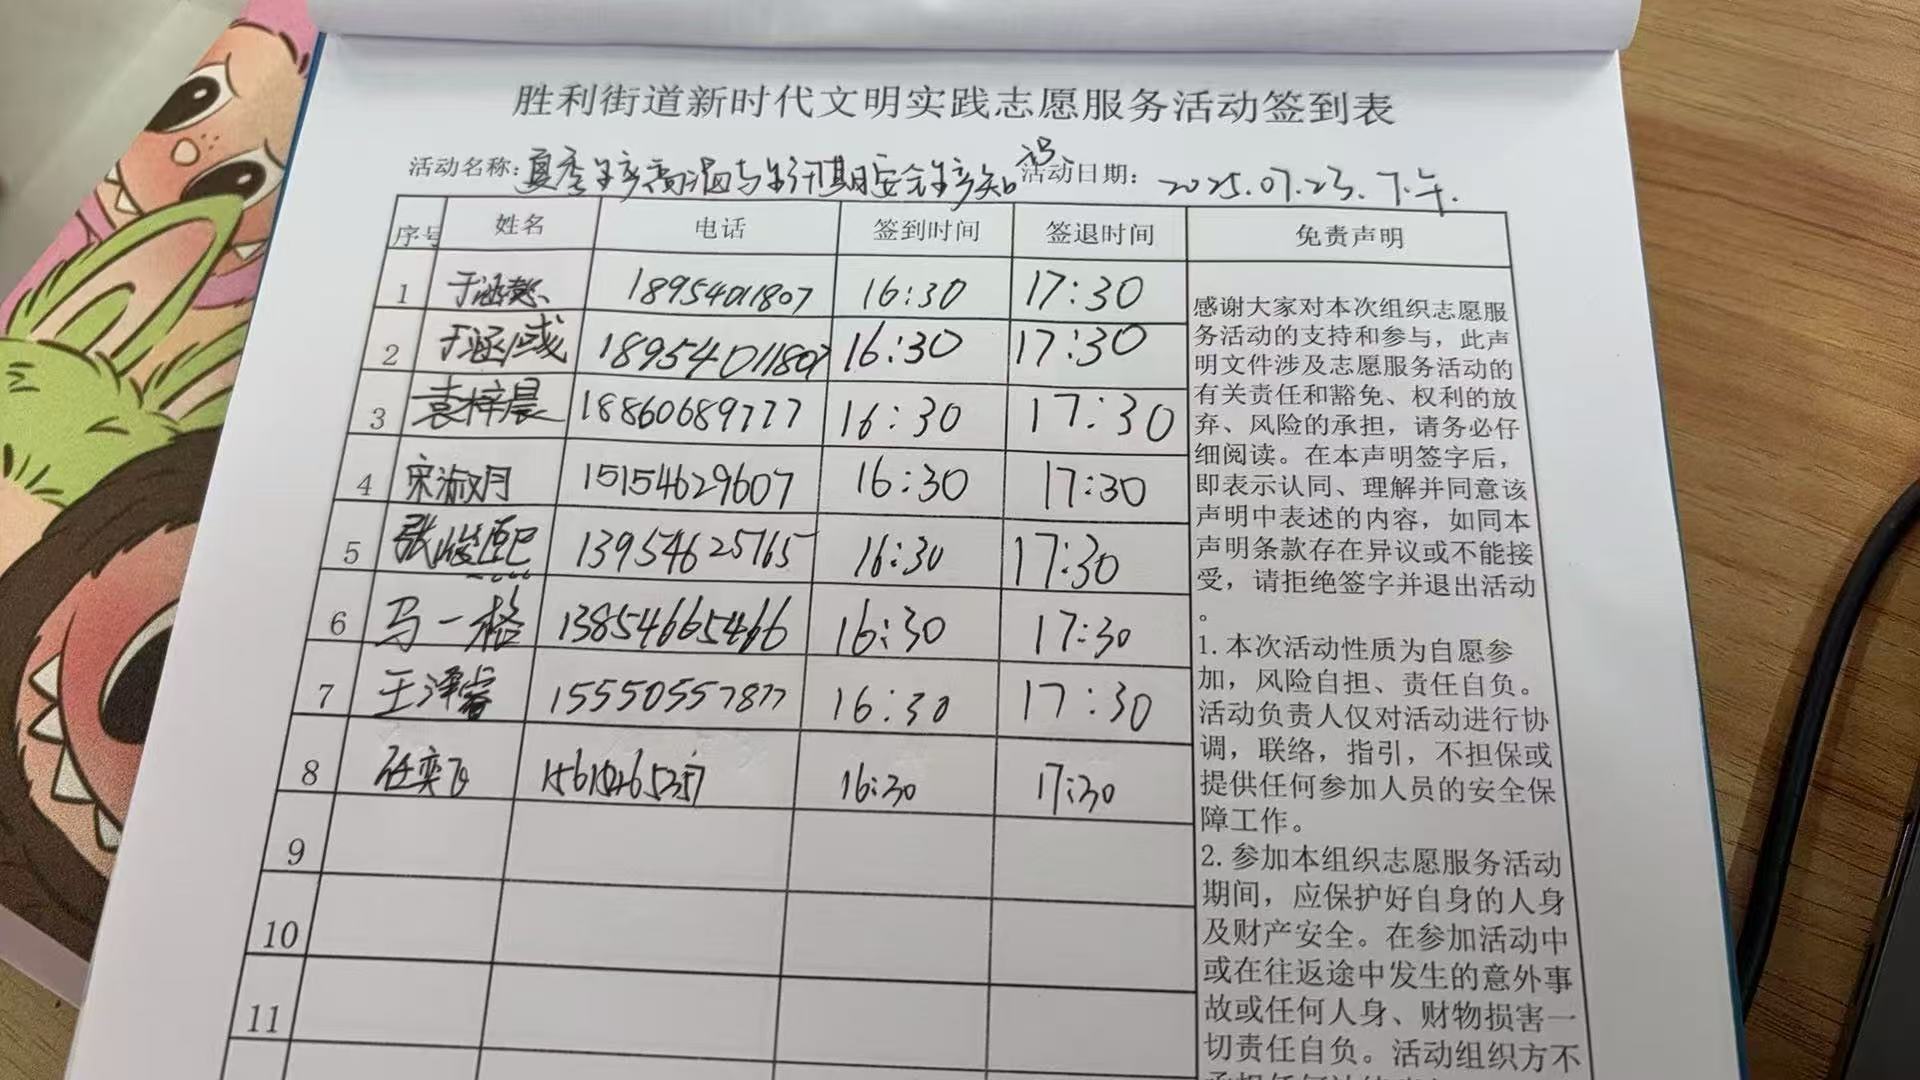 胜利街道新时代文明实践志愿服务活动签到表
活动名称: 夏季 高温与 汛期安全生产知识 活动日期: 2025.07.23.下午.
序号 姓名 电话 签到时间 签退时间 免责声明
1 于涵懿 18954011807 16:30 17:30
2 于涵彧 18954011807 16:30 17:30
3 袁梓晨 18860689777 16:30 17:30
4 宋淑月 15154629607 16:30 17:30
5 张峻熙 13954625765 16:30 17:30
6 马一格 13854665466 16:30 17:30
7 王泽睿 15550557877 16:30 17:30
8 任奕飞 16:30 17:30
9
10
11
感谢大家对本次组织志愿服
务活动的支持和参与，此声
明文件涉及志愿服务活动的
有关责任和豁免、权利的放
弃、风险的承担，请务必仔
细阅读。在本声明签字后，
即表示认同、理解并同意该
声明中表述的内容，如同本
声明条款存在异议或不能接
受，请拒绝签字并退出活动
。
1.本次活动性质为自愿参
加，风险自担、责任自负。
活动负责人仅对活动进行协
调，联络，指引，不担保或
提供任何参加人员的安全保
障工作。
2.参加本组织志愿服务活动
期间，应保护好自身的人身
及财产安全。在参加活动中
或在往返途中发生的意外事
故或任何人身、财物损害一
切责任自负。活动组织方不